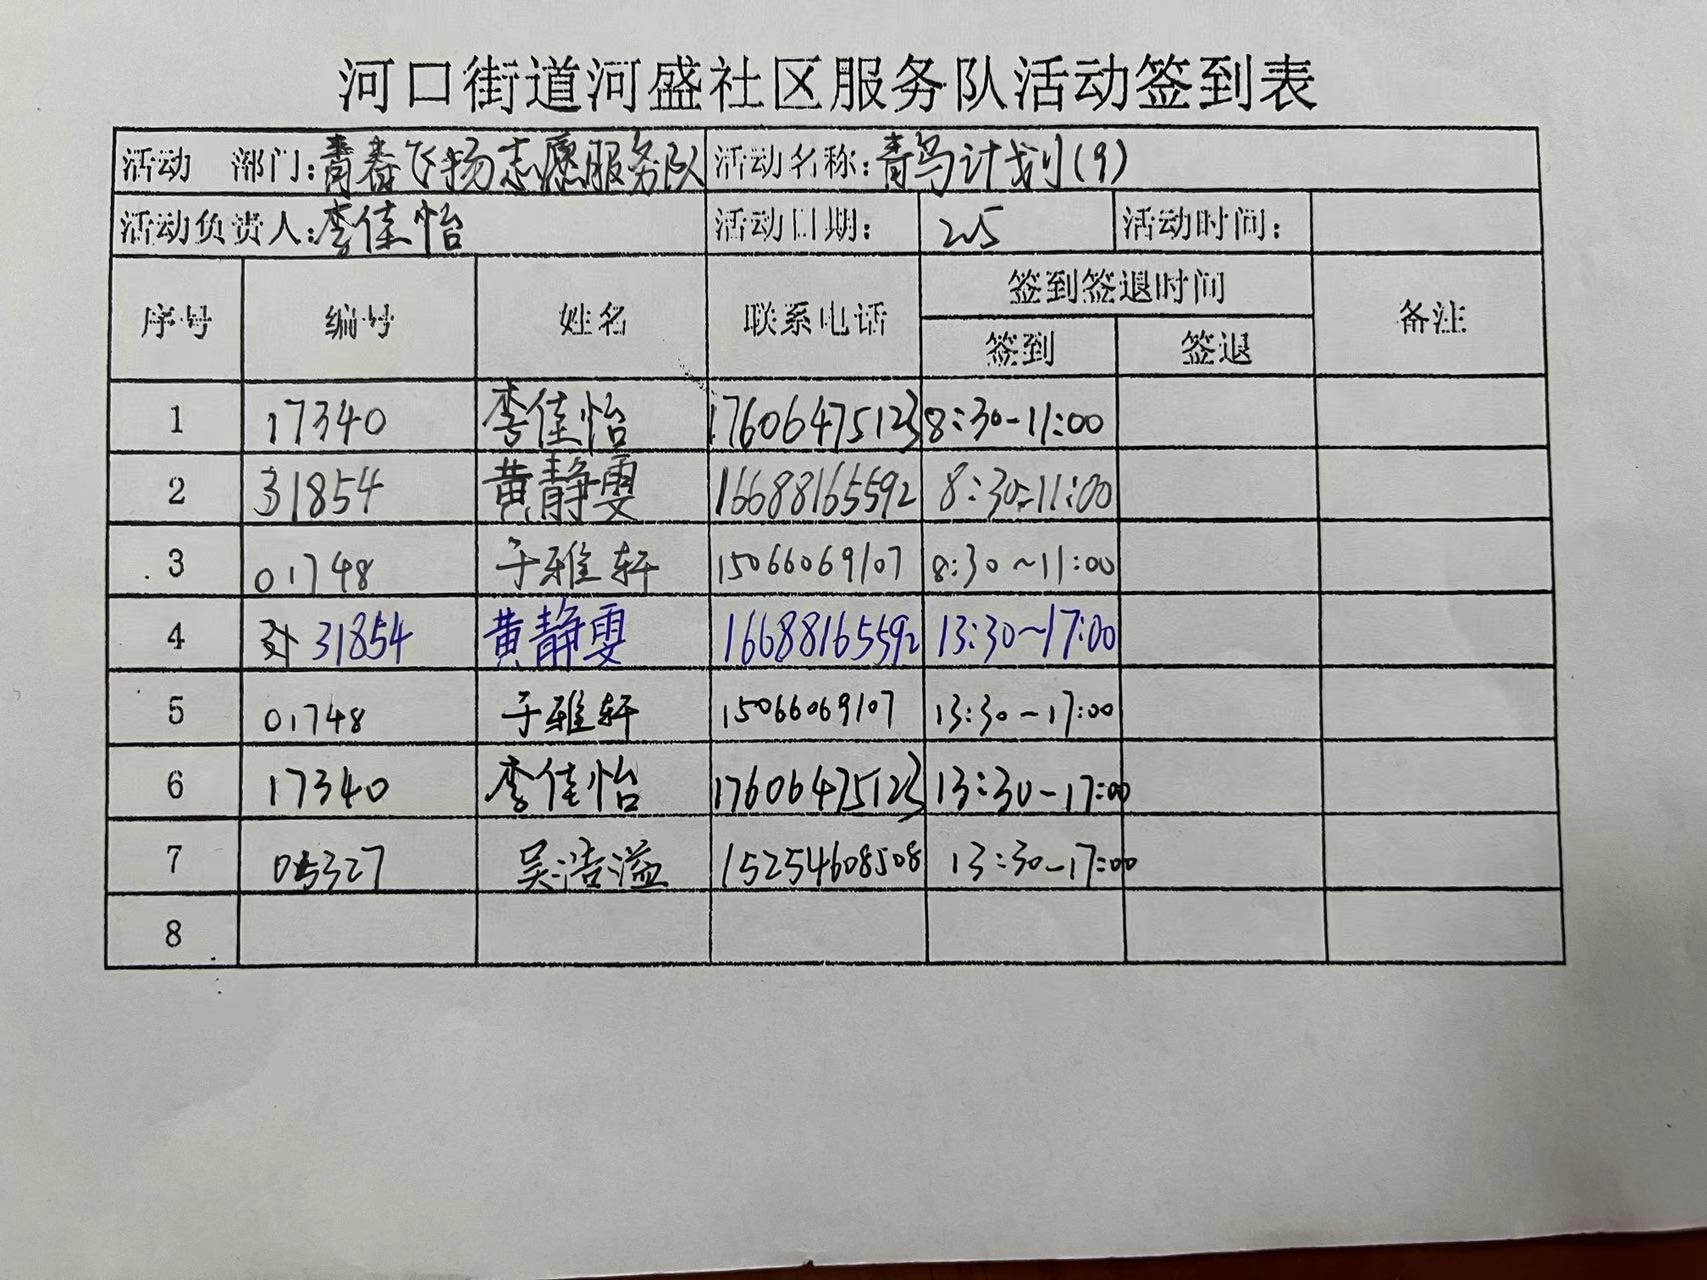 河口街道河盛社区服务队活动签到表
活动 部门:青春飞扬志愿服务队 活动名称:青鸟计划(9)
活动负责人:李佳怡 活动日期: 2.5 活动时间:
序号 编号 姓名 联系电话 签到签退时间 备注
签到 签退
1 17340 李佳怡 17606475123 8:30-11:00
2 31854 黄静雯 16688165592 8:30-11:00
3 01748 于雅轩 15066069107 8:30~11:00
4 31854 黄静雯 16688165592 13:30~17:00
5 01748 于雅轩 15066069107 13:30-17:00
6 17340 李佳怡 17606475123 13:30-17:00
7 05327 吴浩溢 15254608508 13:30-17:00
8